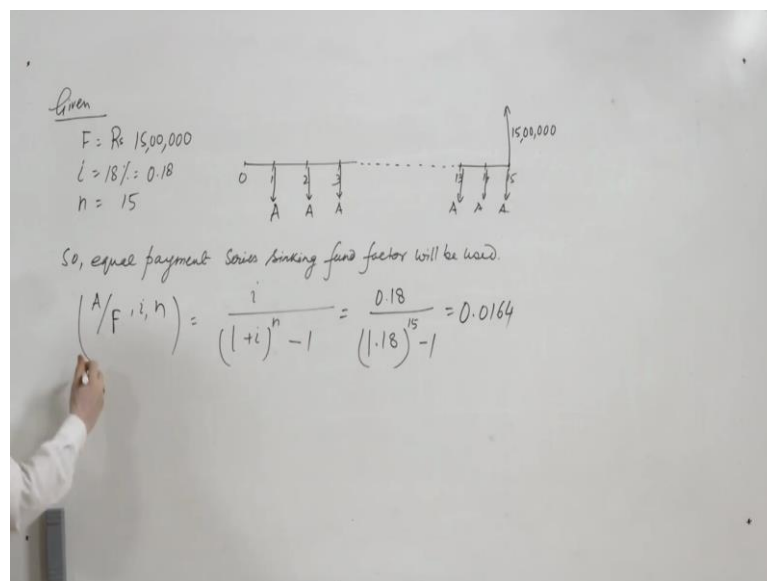 Given
F = Rs 15,00,000
i = 18% = 0.18
n = 15
15,00,000
0 1 2 3 13 14 15
A A A A A A
So, equal payment series sinking fund factor will be used.
(A/F, i, n) = i / ((1+i)^n - 1) = 0.18 / ((1.18)^15 - 1) = 0.0164